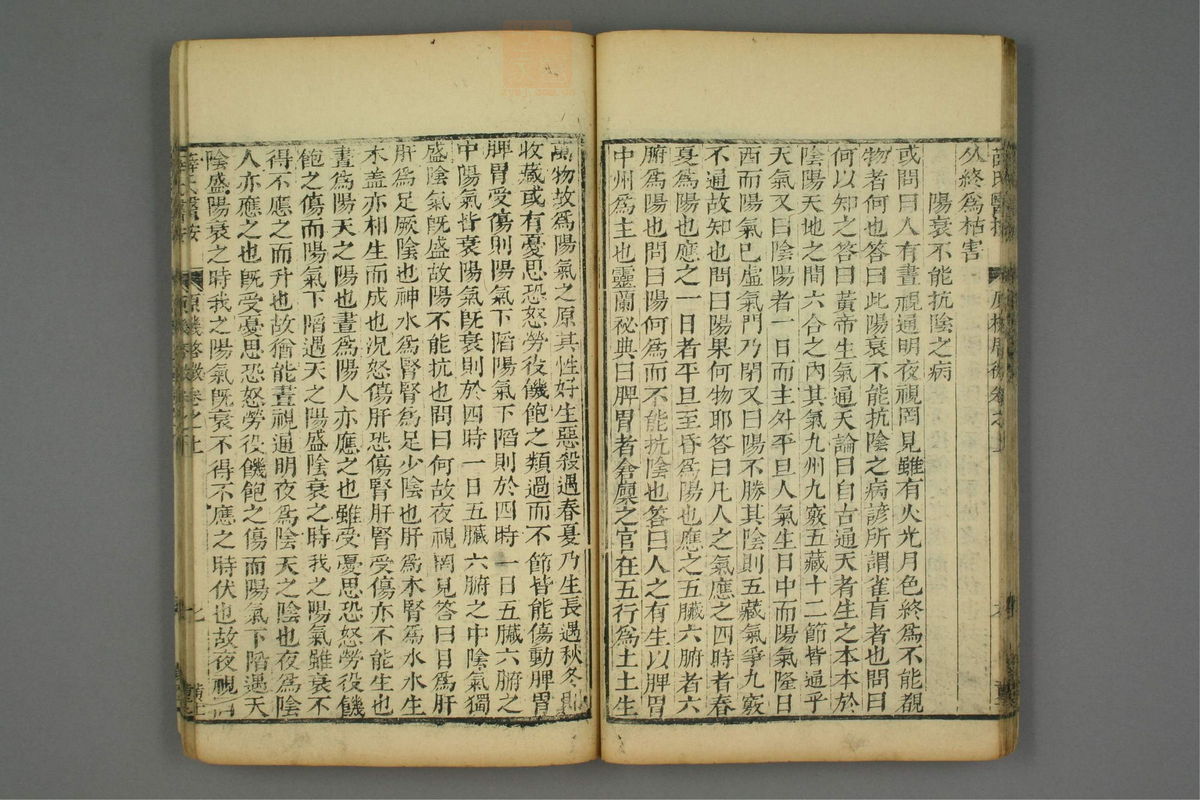 久終爲枯害
陽衰不能抗陰之病
或問曰人有晝視通明夜視罔見雖有火光月色終爲不能覩
物者何也答曰此陽衰不能抗陰之病諺所謂雀盲者也問曰
何以知之答曰黃帝生氣通天論曰自古通天者生之本本於
陰陽天地之間六合之內其氣九州九竅五藏十二節皆通乎
天氣又曰陰陽者一日而主外平旦人氣生日中而陽氣隆日
西而陽氣已虛氣門乃閉又曰陽不勝其陰則五藏氣爭九竅
不通故知也問曰陽果何物耶答曰凡人之氣應之四時者春
夏爲陽也應之一日者平旦至昏爲陽也應之五臟六腑者六
腑爲陽也問曰陽何爲而不能抗陰也答曰人之有生以脾胃
中州爲主也靈蘭祕典曰脾胃者倉廩之官在五行爲土土生
萬物故爲陽氣之原其性好生惡殺遇春夏乃生長遇秋冬則
收藏或有憂思恐怒勞役饑飽之類過而不節皆能傷動脾胃
脾胃受傷則陽氣下陷陽氣下陷則於四時一日五臟六腑之
中陽氣皆衰陽氣既衰則於四時一日五臟六腑之中陰氣獨
盛陰氣既盛故陽不能抗也問曰何故夜視罔見答曰目爲肝
肝爲足厥陰也神水爲腎腎爲足少陰也肝爲木腎爲水水生
木蓋亦相生而成也況怒傷肝恐傷腎肝腎受傷亦不能生也
晝爲陽天之陽也晝爲陽人亦應之也雖受憂思恐怒勞役饑
飽之傷而陽氣下陷遇天之陽盛陰衰之時我之陽氣雖衰不
得不應之而升也故猶能晝視通明夜爲陰天之陰也夜爲陰
人亦應之也既受憂思恐怒勞役饑飽之傷而陽氣下陷遇天
陰盛陽衰之時我之陽氣既衰不得不應之時伏也故夜視罔
薛氏醫按
原機啓微卷之上